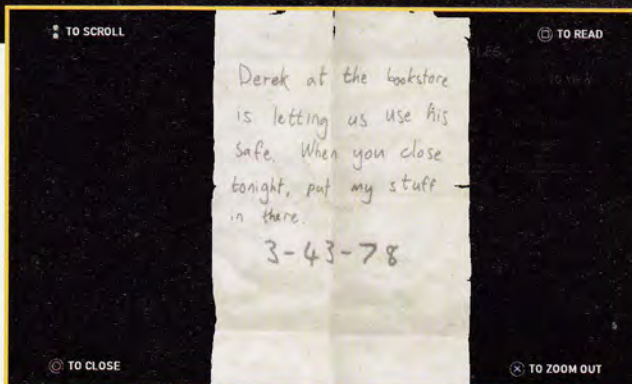 TO SCROLL
TO READ
Derek at the bookstore
is letting us use his
safe. When you close
tonight, put my stuff
in there.
3-43-78
TO CLOSE
TO ZOOM OUT